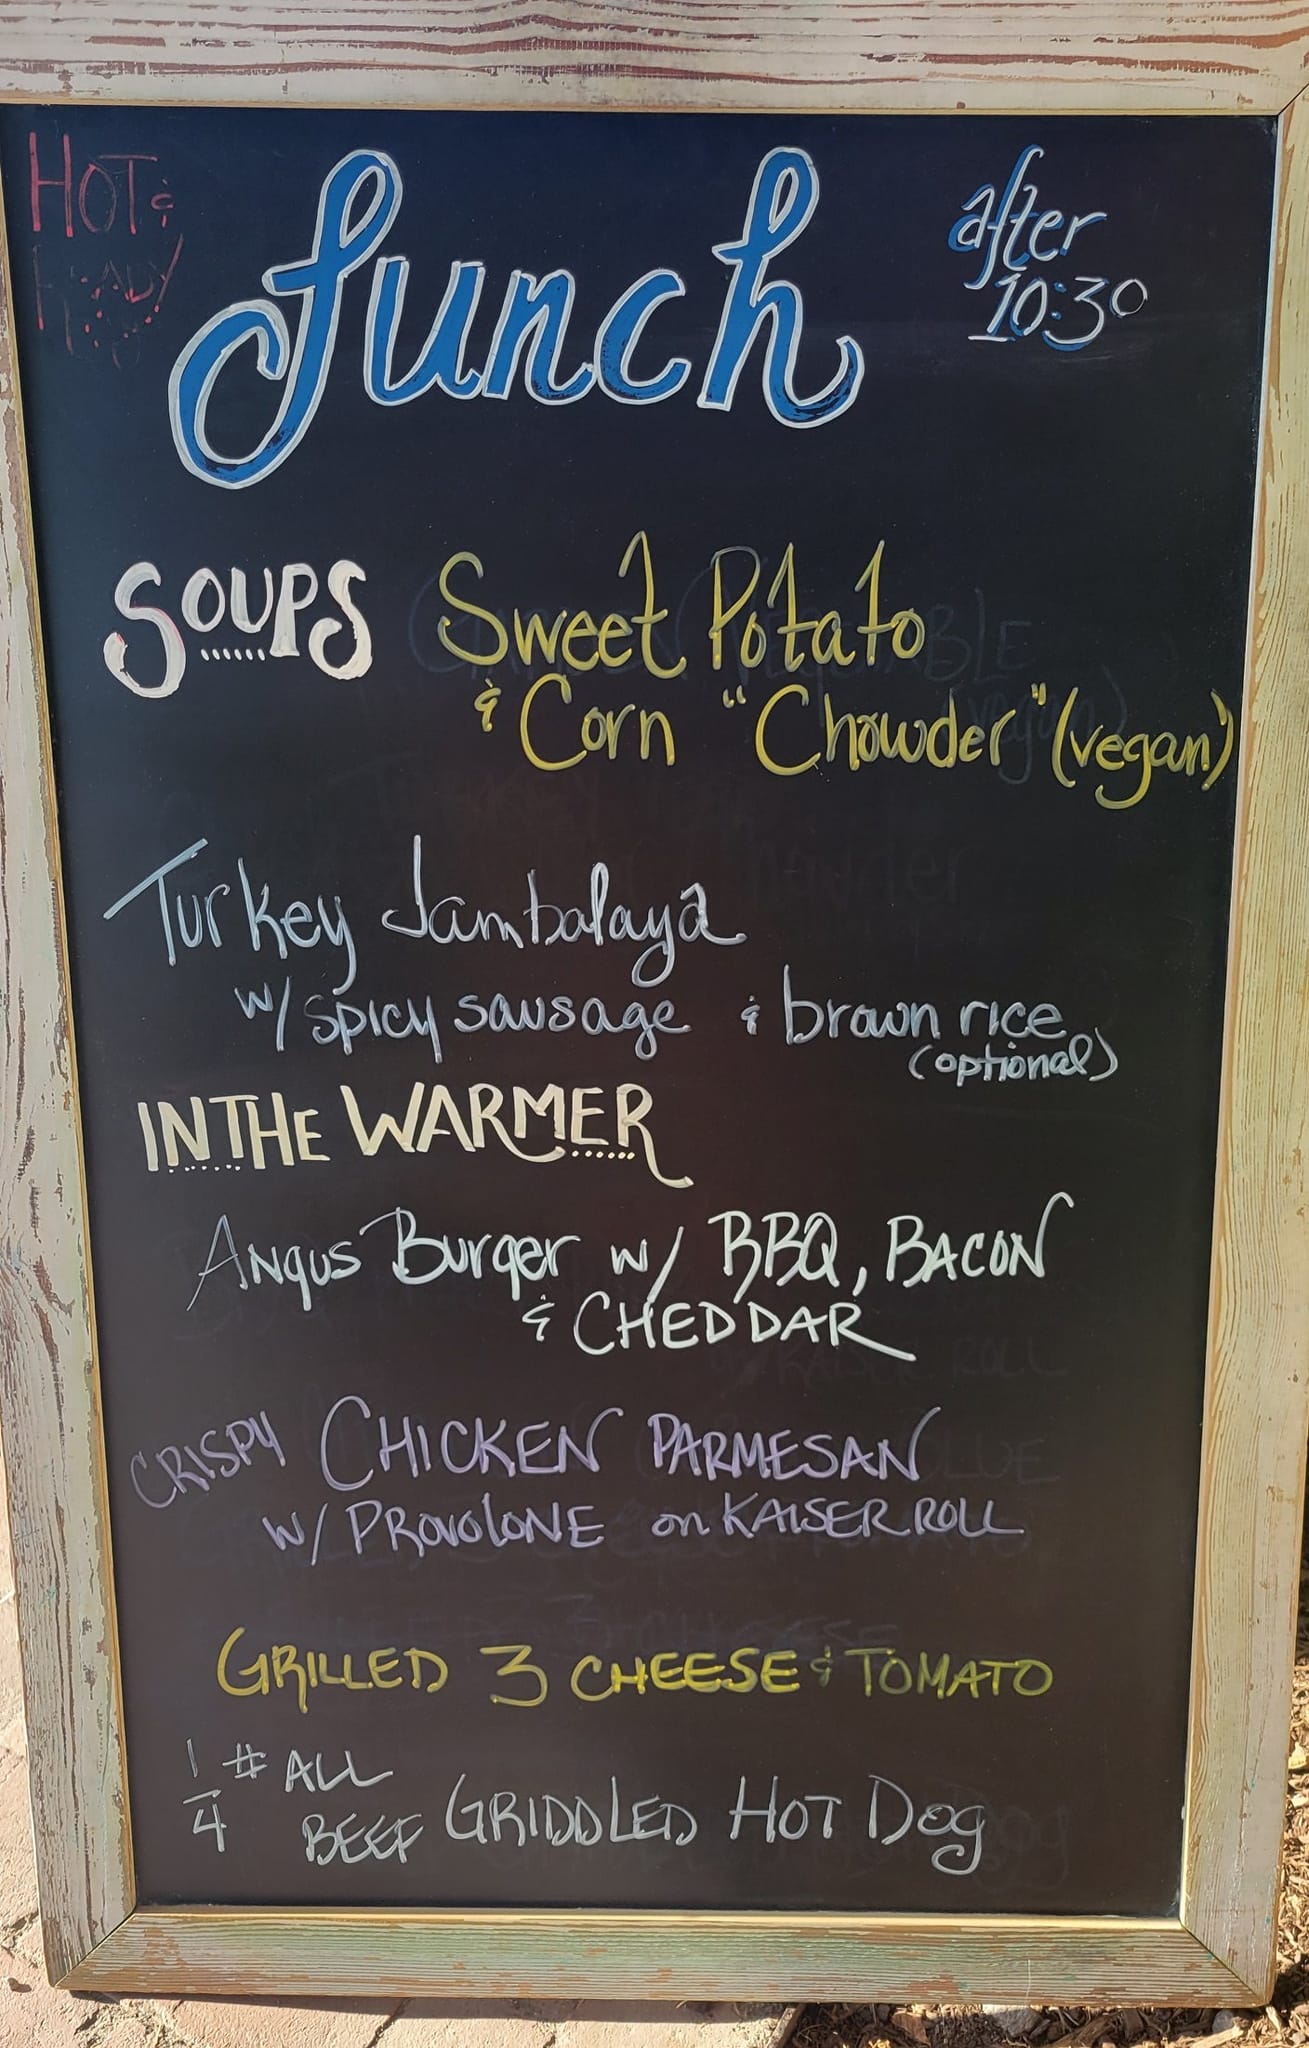 HOT &
READY
Lunch
after
10:30
SOUPS Sweet Potato
& Corn "Chowder" (vegan)
Turkey Jambalaya
w/ spicy sausage & brown rice
(optional)
IN THE WARMER
Angus Burger w/ BBQ, BACON
& CHEDDAR
CRISPY CHICKEN PARMESAN
w/ PROVOLONE on KAISER ROLL
GRILLED 3 CHEESE & TOMATO
1/4 # ALL
BEEF GRIDDLED HOT Dog